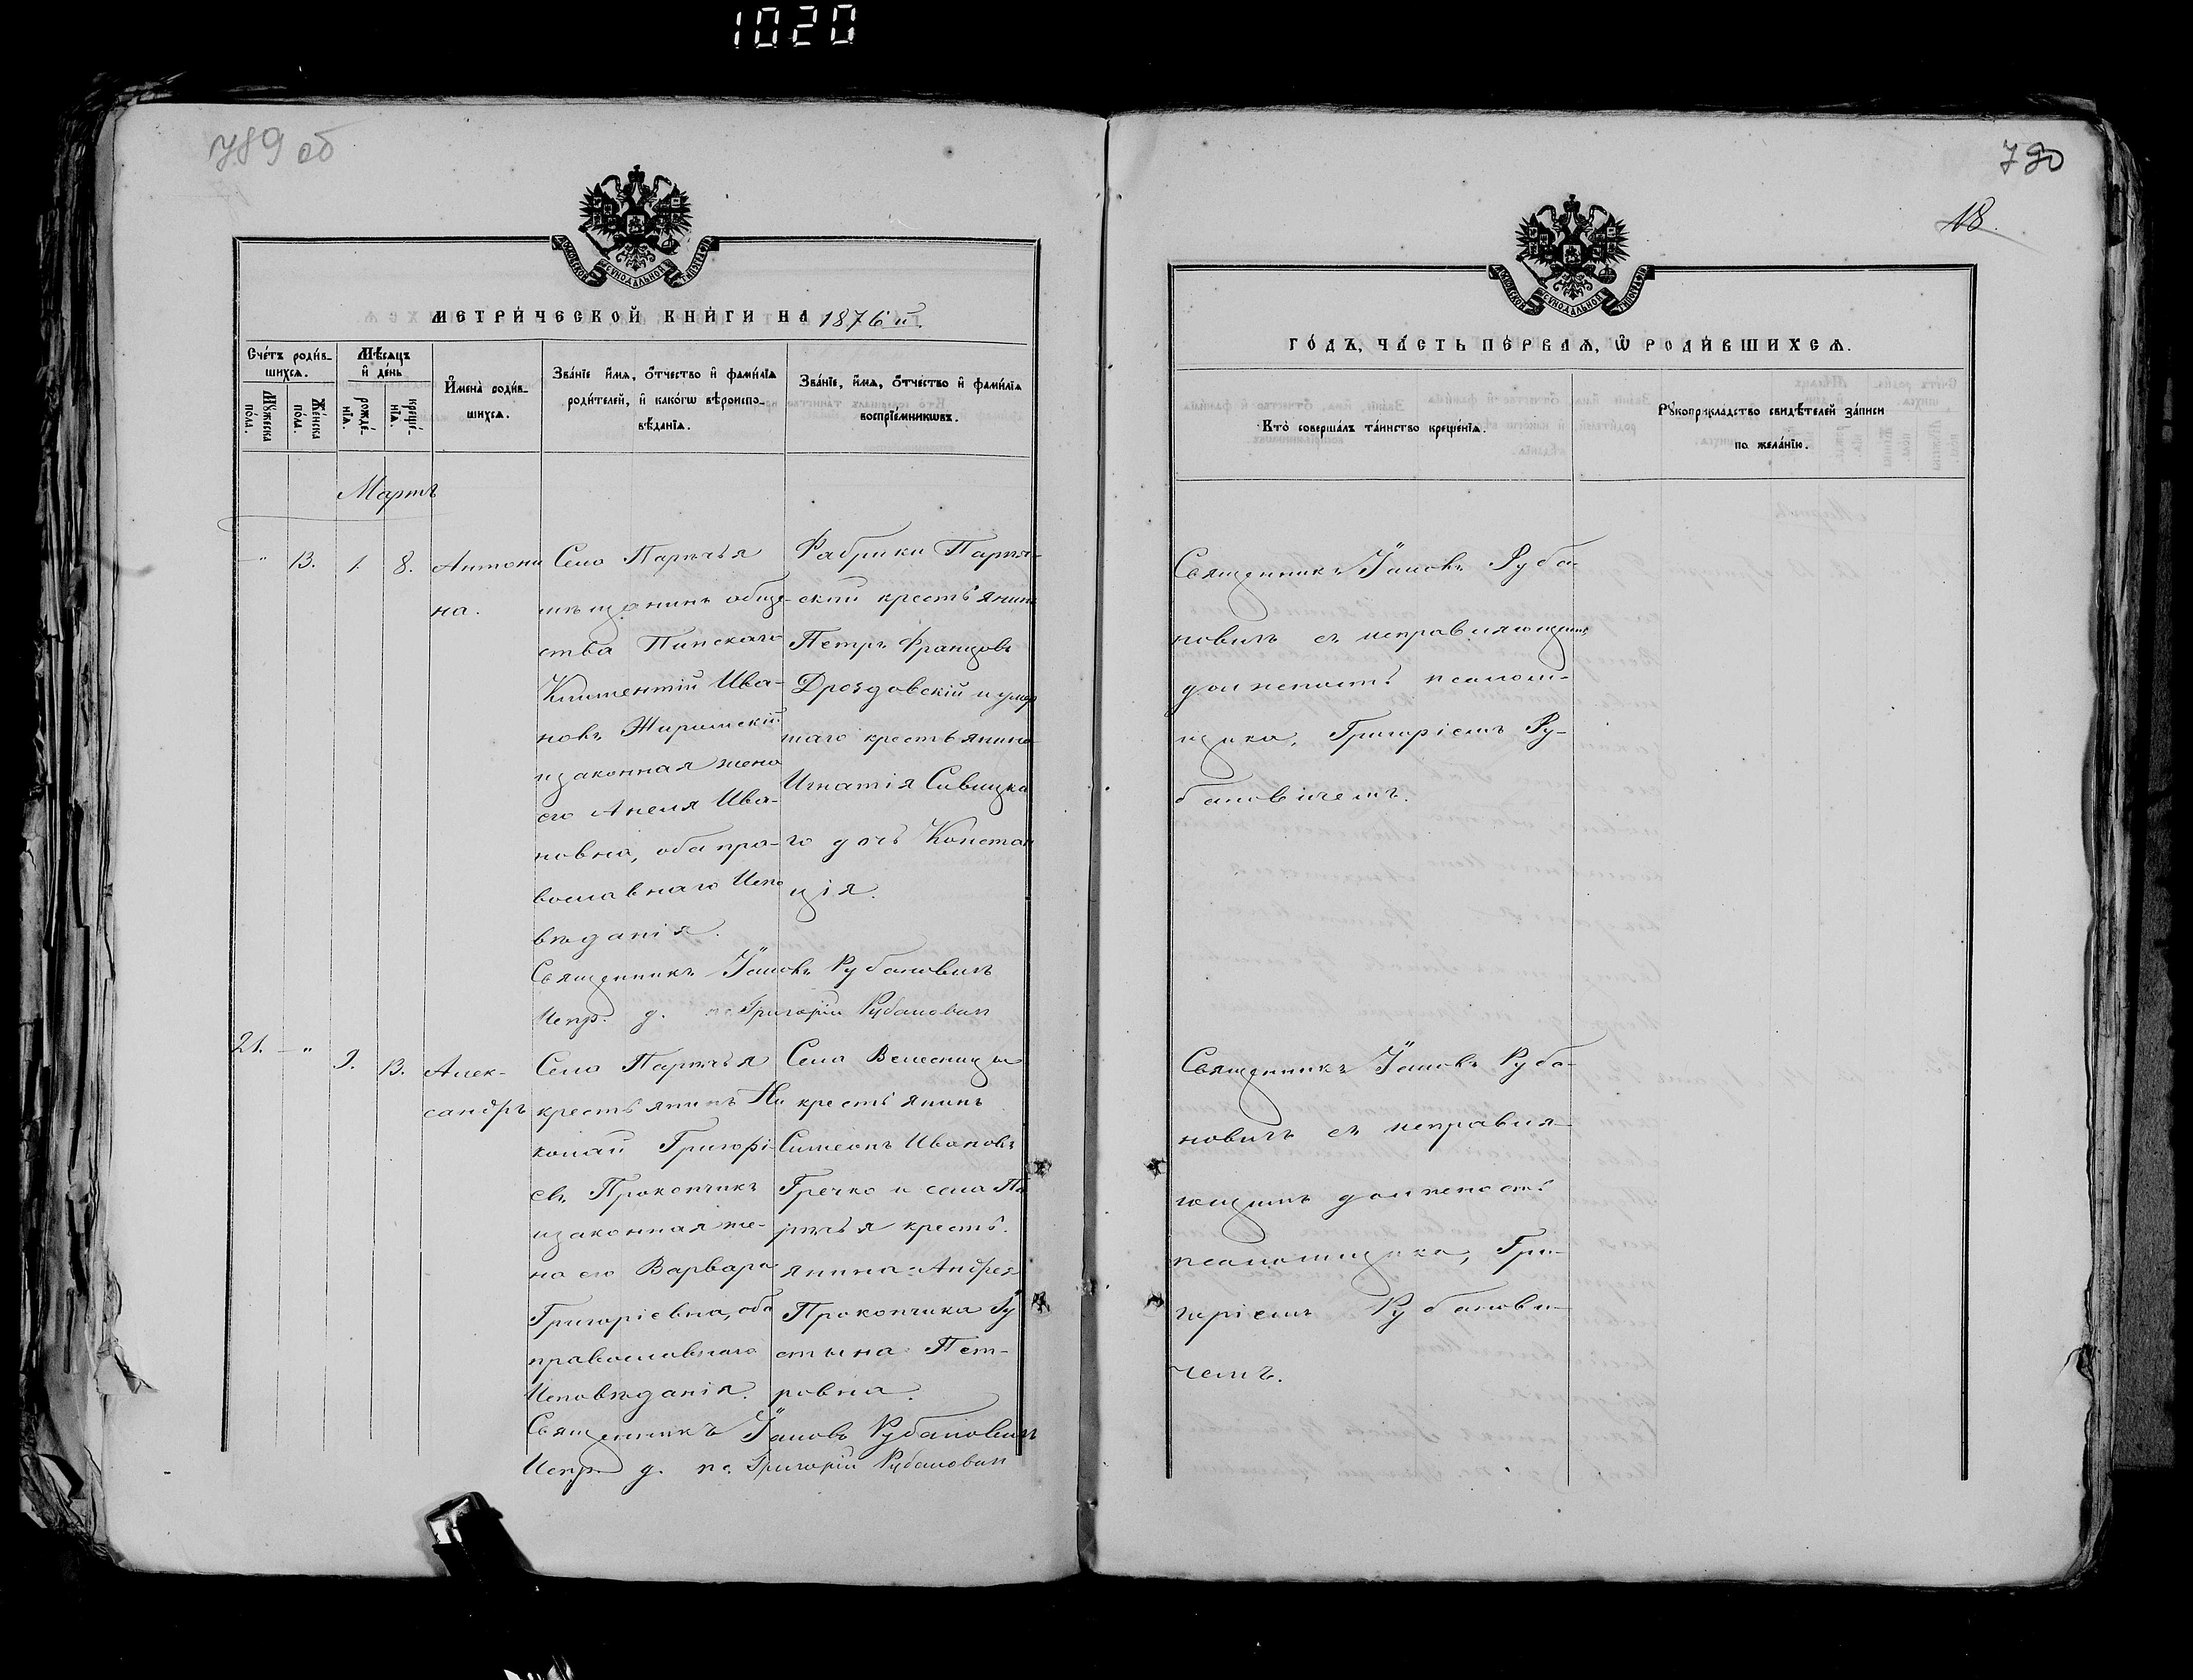 1020
789 об
МЕТРИ́ЧЕСКОЙ КНИ́ГИ НА 1876 й.
Сче́тъ роди́в-
шихсѧ.
Мѣ́сѧцъ
и҆ де́нь
Мꙋ́жеска
по́ла.
Же́нска
по́ла.
рожде́-
нїѧ.
креще́-
нїѧ.
И҆мена̀ роди́в-
шихсѧ.
Зва́нїе и҆́мѧ, ѻ҆́тчество и҆ фами́лїѧ
роди́телей, и҆ како́гѡ вѣроиспо-
вѣ́данїѧ.
Зва́нїе, и҆́мѧ, ѻ҆́тчество и҆ фами́лїѧ
воспрїе́мникѡвъ.
Мартъ
" 13. 1. 8.
Антони
на.
Села Парѣчья
мѣщанинъ обще-
ства Пинскаго
Климентій Ива-
новъ Жиромскій
и законная жена
его Анеля Ива-
новна, оба пра-
вославнаго Испо
вѣданія.
Фабрики Парѣч-
ской крестьянинъ
Петръ Францовъ
Дроздовскій и умер
шаго крестьянина
Игнатія Савицка
го дочь Констан
ція.
Священникъ Іаковъ Рубановичъ
Испр. д. пс. Григорій Рубановичъ
21. " 9. 13.
Алек-
сандръ
Села Парѣчья
крестьянинъ Ни
колай Григорі-
евъ Прокопчикъ
и законная же-
на его Варвара
Григоріевна, оба
православнаго
Исповѣданія.
Села Велесницы
крестьянинъ
Симеонъ Ивановъ
Гречко и села Па
рѣчья кресть-
янина Андрея
Прокопчика Іу
стына Пет-
ровна.
Священникъ Іаковъ Рубановичъ
Испр. д. пс. Григорій Рубановичъ
790
18.
ГО́ДЪ, ЧА́СТЬ ПЕ́РВАѦ, Ѡ҆ РОДИ́ВШИХСѦ.
Кто̀ соверша́лъ та́инство креще́нїѧ.
Рꙋкоприкла́дство свидѣ́телей за́писи
по жела́нїю.
Священникъ Іаковъ Руба-
новичъ съ исправляющимъ
должность псалом-
щика, Григоріемъ Ру-
бановичемъ.
Священникъ Іаковъ Руба-
новичъ съ исправля-
ющимъ должность
псаломщика, Гри-
горіемъ Рубанови-
чемъ.